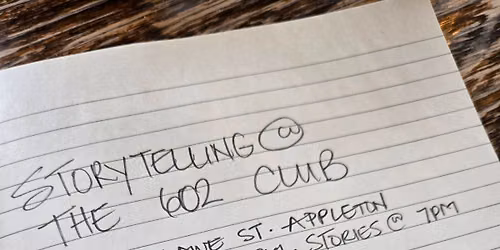 STORYTELLING @
THE 602 CLUB
ST. APPLETON
STORIES @ 7PM